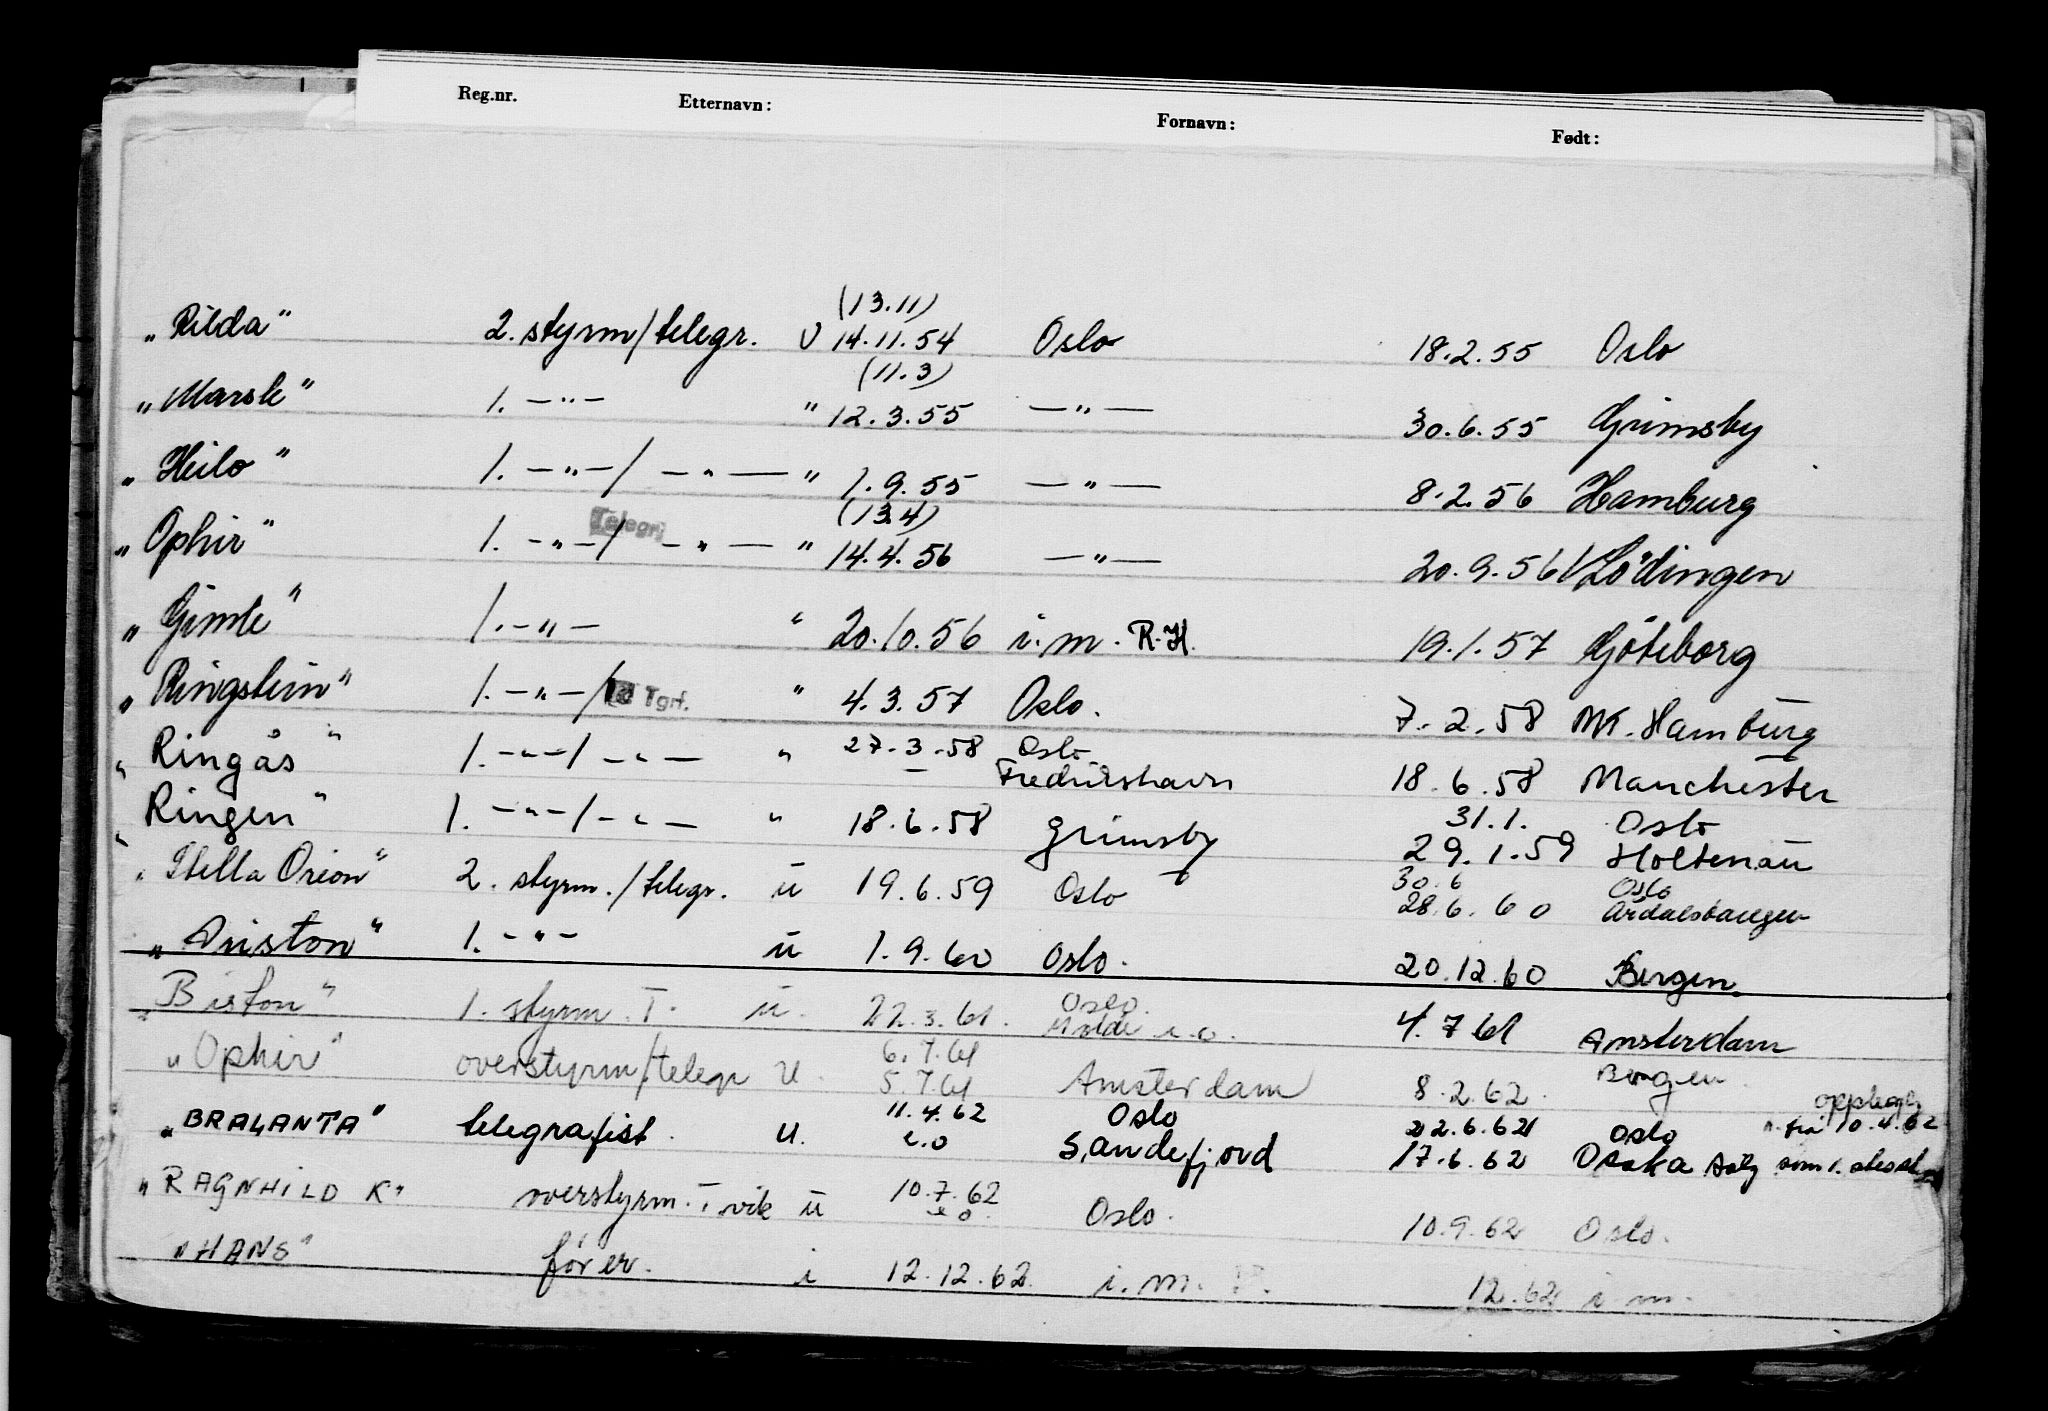 Reg.nr. Etternavn: Fornavn: Født:
(13.11)
"Rilda" 2. styrm/telegr. U 14.11.54 Oslo 18.2.55 Oslo
(11.3)
"Marsk" 1. —"— " 12.3.55 —"— 30.6.55 Grimsby
"Heilo" 1. —"—/ —"— " 1.9.55 —"— 8.2.56 Hamburg
Telegr. (13.4)
"Ophir" 1. —"—/ —"— " 14.4.56 —"— 20.9.56 Lödingen
"Gimle" 1. —"— " 20.10.56 i.m. R.H. 19.1.57 Göteborg
"Ringstein" 1. —"—/ Tgrf. " 4.3.57 Oslo. 7.2.58 NK. Hamburg
"Ringås" 1. —"—/ —"— " 27.3.58 Oslo
— Fredrikshavn 18.6.58 Manchester
31.1. Oslo
"Ringen" 1. —"—/ —"— " 18.6.58 Grimsby 29.1.59 Holtenau
30.6 Oslo
"Stella Orion" 2. styrm./telegr. u 19.6.59 Oslo 28.6.60 Årdalstangen
"Ariston" 1. —"— u 1.9.60 Oslo. 20.12.60 Bergen.
"Biston" 1. styrm. T. u. 22.3.61. Oslo.
Molde e.o. 4.7.61 Amsterdam
6.7.61 Bergen
"Ophir" overstyrm/telegr U. 5.7.61 Amsterdam 8.2.62.
11.4.62 Oslo 22.6.62 Oslo fra 10.4.62
"BRALANTA" telegrafist. U. e.o Sandefjord 17.6.62 Osaka som 1.
"RAGNHILD K" overstyrm. T vik u 10.7.62
e o. Oslo. 10.9.62 Oslo.
"HANS" fører. i 12.12.62 i.m. 12.62 i m.